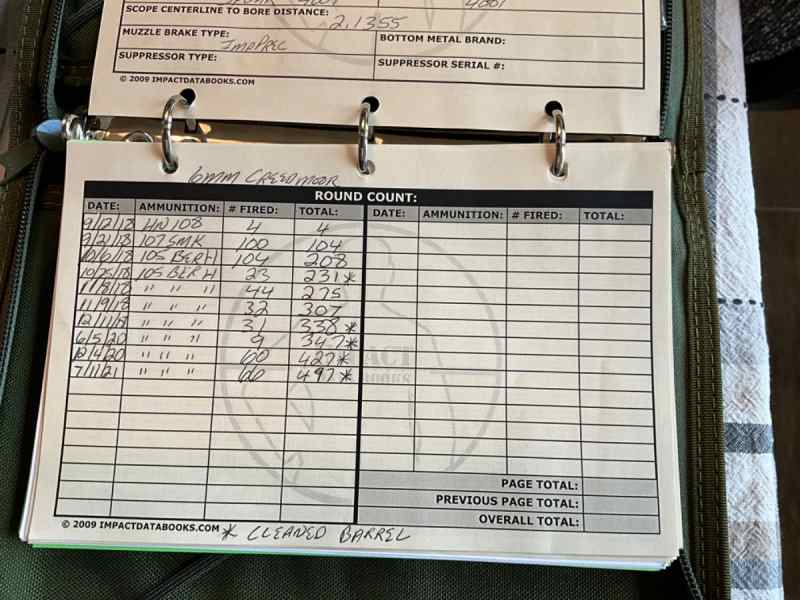 SCOPE CENTERLINE TO BORE DISTANCE: 2.1355
MUZZLE BRAKE TYPE: ImpPrec BOTTOM METAL BRAND:
SUPPRESSOR TYPE: SUPPRESSOR SERIAL #:
© 2009 IMPACTDATABOOKS.COM
6mm CREEDMOOR
ROUND COUNT:
DATE: AMMUNITION: # FIRED: TOTAL: DATE: AMMUNITION: # FIRED: TOTAL:
9/12/18 HN 108 4 4
9/21/18 107 SMK 100 104
10/6/18 105 BERH 104 208
10/25/18 105 BERH 23 231*
11/8/18 " " " 44 275
11/9/18 " " " 32 307
12/11/18 " " " 31 338*
6/5/20 " " " 9 347*
12/4/20 " " " 60 427*
7/11/21 " " " 497*
IMPACT
BOOKS
PAGE TOTAL:
PREVIOUS PAGE TOTAL:
OVERALL TOTAL:
© 2009 IMPACTDATABOOKS.COM * CLEANED BARREL